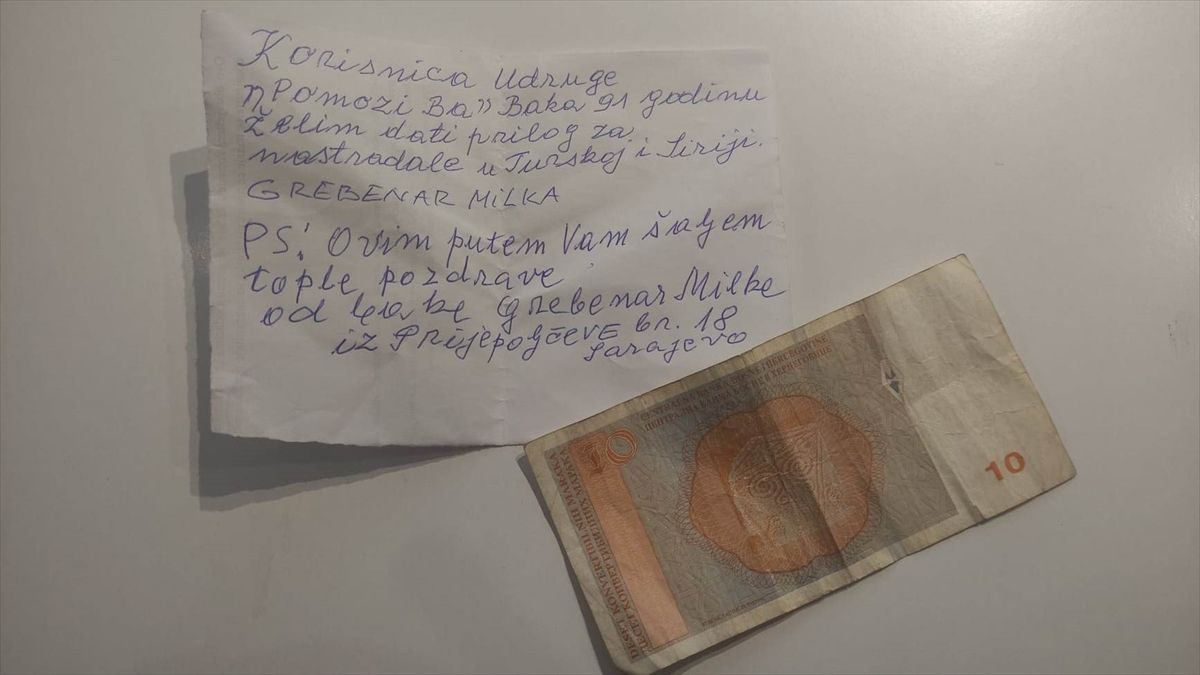 Korisnica Udruge
"Pomozi Ba" Baka 91 godinu
Želim dati prilog za
nastradale u Turskoj i Siriji.
GREBENAR MiLKA
PS! Ovim putem Vam šaljem
tople pozdrave
od bake Grebenar Milke
iz Prijepoljčeve br. 18
Sarajevo
CENTRALNA BANKA BOSNE I HERCEGOVINE
ЦЕНТРАЛНА БАНКА БОСНЕ И ХЕРЦЕГОВИНЕ
10
DESET KONVERTIBILNIH MARAKA
ДЕСЕТ КОНВЕРТИБИЛНИХ МАРАКА
10